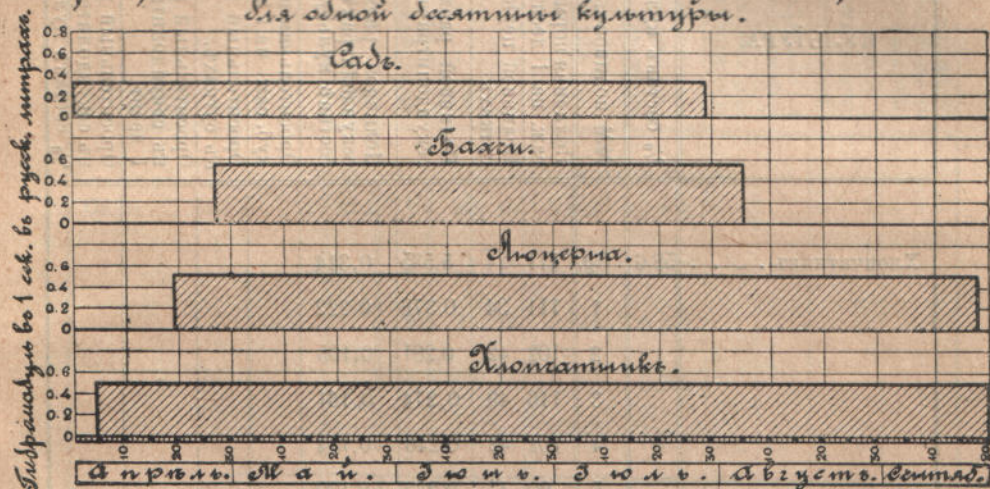 для одной десятины культуры.
Гидромодуль въ 1 сек. въ русск. литрахъ.
0.8
Садъ.
0.6
0.4
0.2
0
Бахчи.
0.6
0.4
0.2
0
Люцерна.
0.6
0.4
0.2
0
Хлопчатникъ.
0.6
0.4
0.2
0
10 20 30 10 20 30 10 20 30 10 20 30 10 20 30 10 20
Апрѣль. Май. Іюнь. Іюль. Августъ. Сентяб.